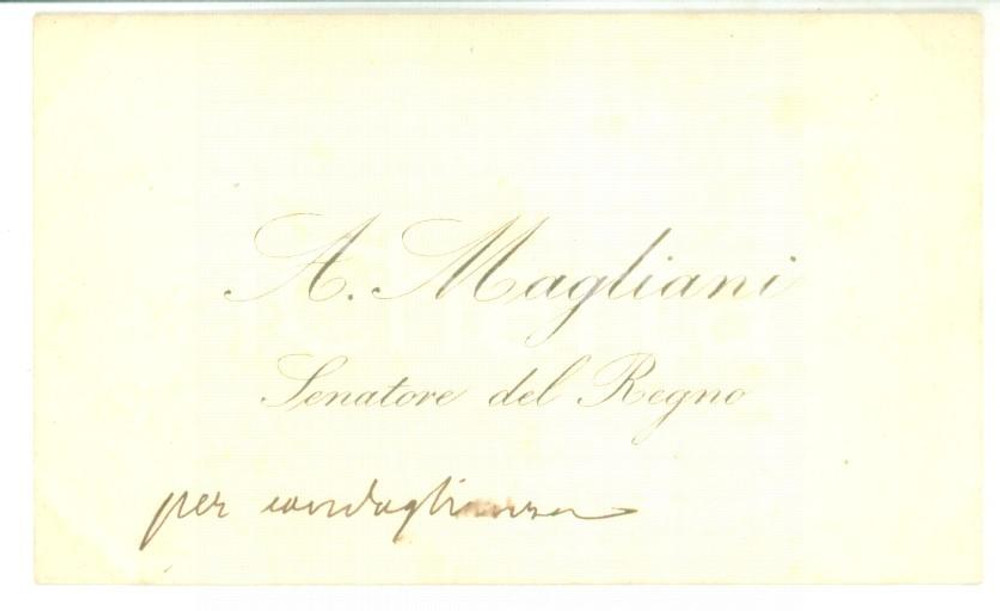 A. Magliani
Senatore del Regno
per condoglianza